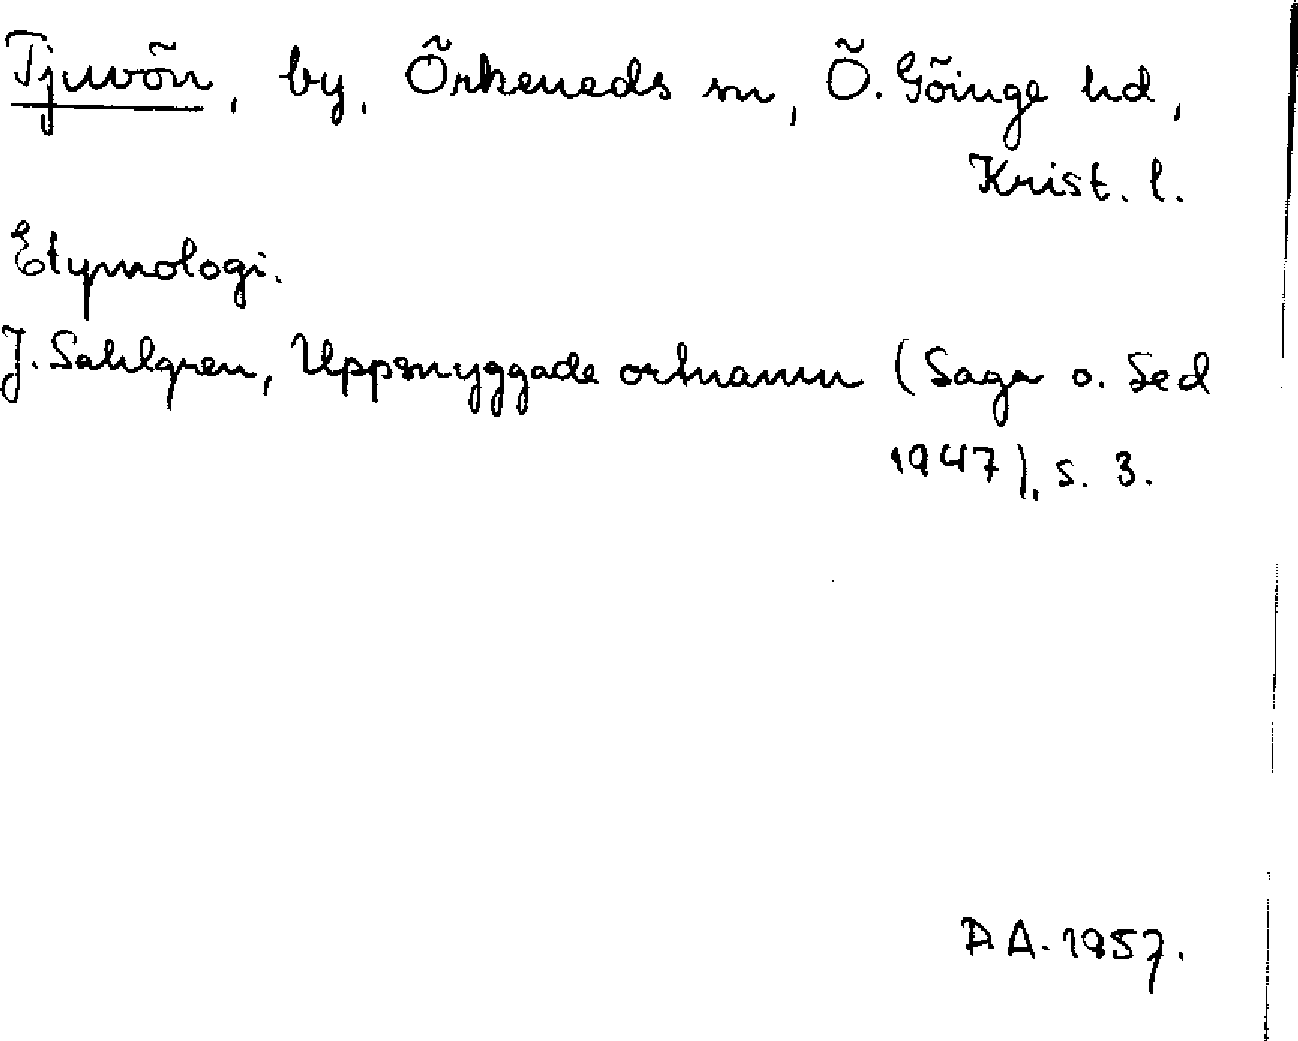 Tjuvön, by, Örkeneds sn, Ö. Göinge hd,
Krist. l.
Etymologi.
J. Sahlgren, Uppsnyggade ortnamn (Saga o. Sed
1947), s. 3.
D.A. 1957.